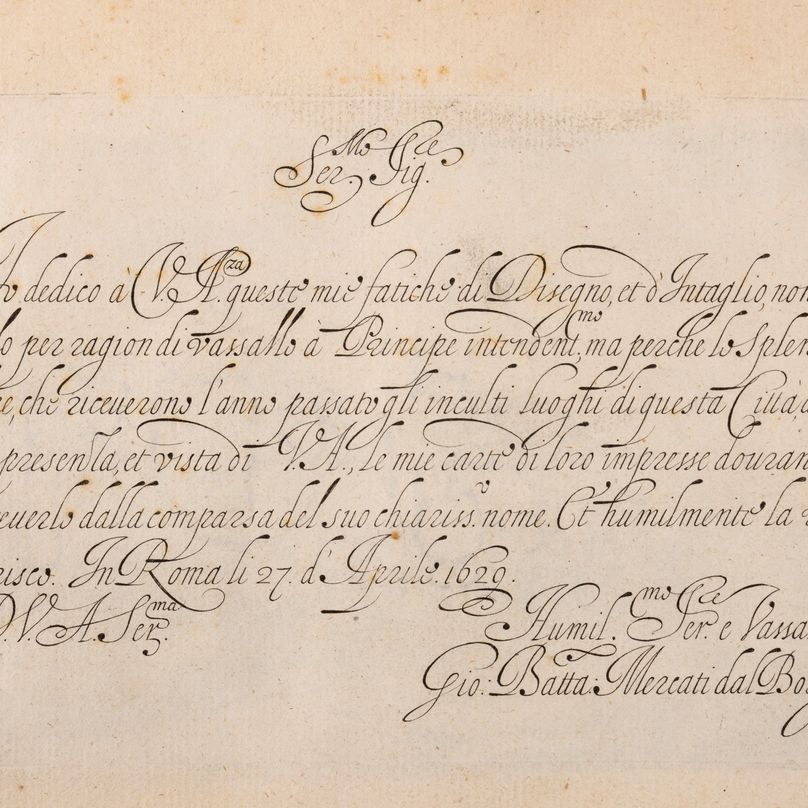 Ser.mo Sig.re
Io dedico à V.A.za queste mie fatiche di Disegno, et d'Intaglio, non
lo per ragion di vassallo à Principe intendent.mo, ma perche lo Splen
re, che riceverono l'anno passato gli inculti luoghi di questa Città, d
presenza, et vista di V.A., le mie carte di loro impresse douran
ceuerlo dalla comparsa del suo chiariss.o nome. Et humilmente la r
risco. In Roma li 27. d'Aprile. 1629.
D.V.A. Ser.ma
Humil.mo Ser.re e Vassa
Gio: Batta: Mercati dal Bor